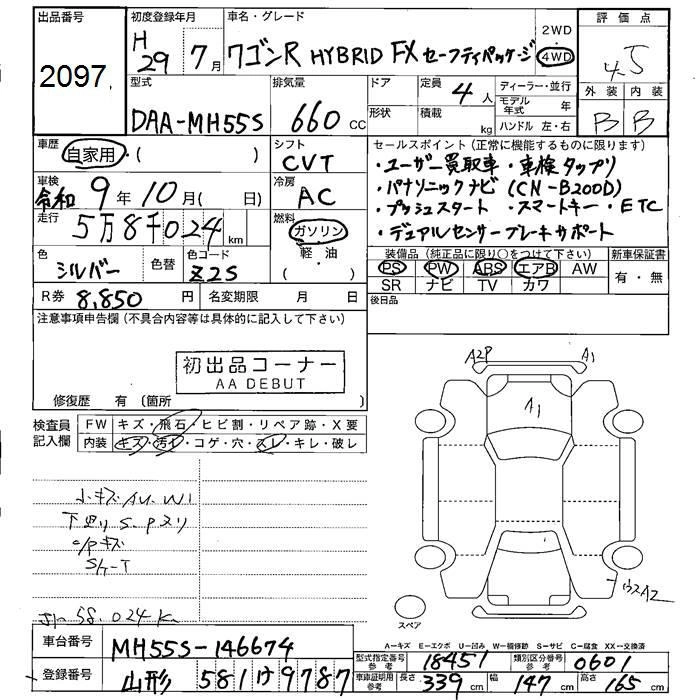 出品番号
2097
初度登録年月
H29 7月
車名・グレード
ワゴンR HYBRID FX セーフティパッケージ
2WD
4WD
評価点
4.5
外装 内装
B B
型式
DAA-MH55S
排気量
660 CC
ドア
形状
定員
4 人
積載
kg
ディーラー・並行
モデル年式 年
ハンドル 左・右
車歴
自家用・( )
シフト
CVT
車検
令和 9年 10月( 日)
冷房
AC
走行
5万8千024 km
燃料
ガソリン
軽油
( )
色
シルバー
色替
色コード
Z2S
R券 8,850 円
名変期限 月 日
セールスポイント(正常に機能するものに限ります)
・ユーザー買取車 ・車検タップリ
・パナソニックナビ (CN-B200D)
・プッシュスタート ・スマートキー ・ETC
・デュアルセンサーブレーキサポート
装備品(純正品に限り○をつけて下さい)
PS PW ABS エアB AW
SR ナビ TV カワ
新車保証書
有・無
後日品
注意事項申告欄(不具合内容等は具体的に記入して下さい)
初出品コーナー
AA DEBUT
修復歴 有(箇所 )
検査員記入欄
FW キズ・飛石・ヒビ割・リペア跡・X要
内装 キズ・汚レ・コゲ・穴・スレ・キレ・破レ
小キズ AU. W1
下廻り S. Pヌリ
58.024
A2P
A1
A1
A2
スペア
A=キズ E=エクボ U=凹み W=補修跡 S=サビ C=腐食 XX=交換済
車台番号 MH55S-146674
登録番号 山形 581 け 9787
型式指定番号 参考 18451
類別区分番号 参考 0601
車庫証明用 参考 長さ 339 cm 幅 147 cm 高さ 165 cm